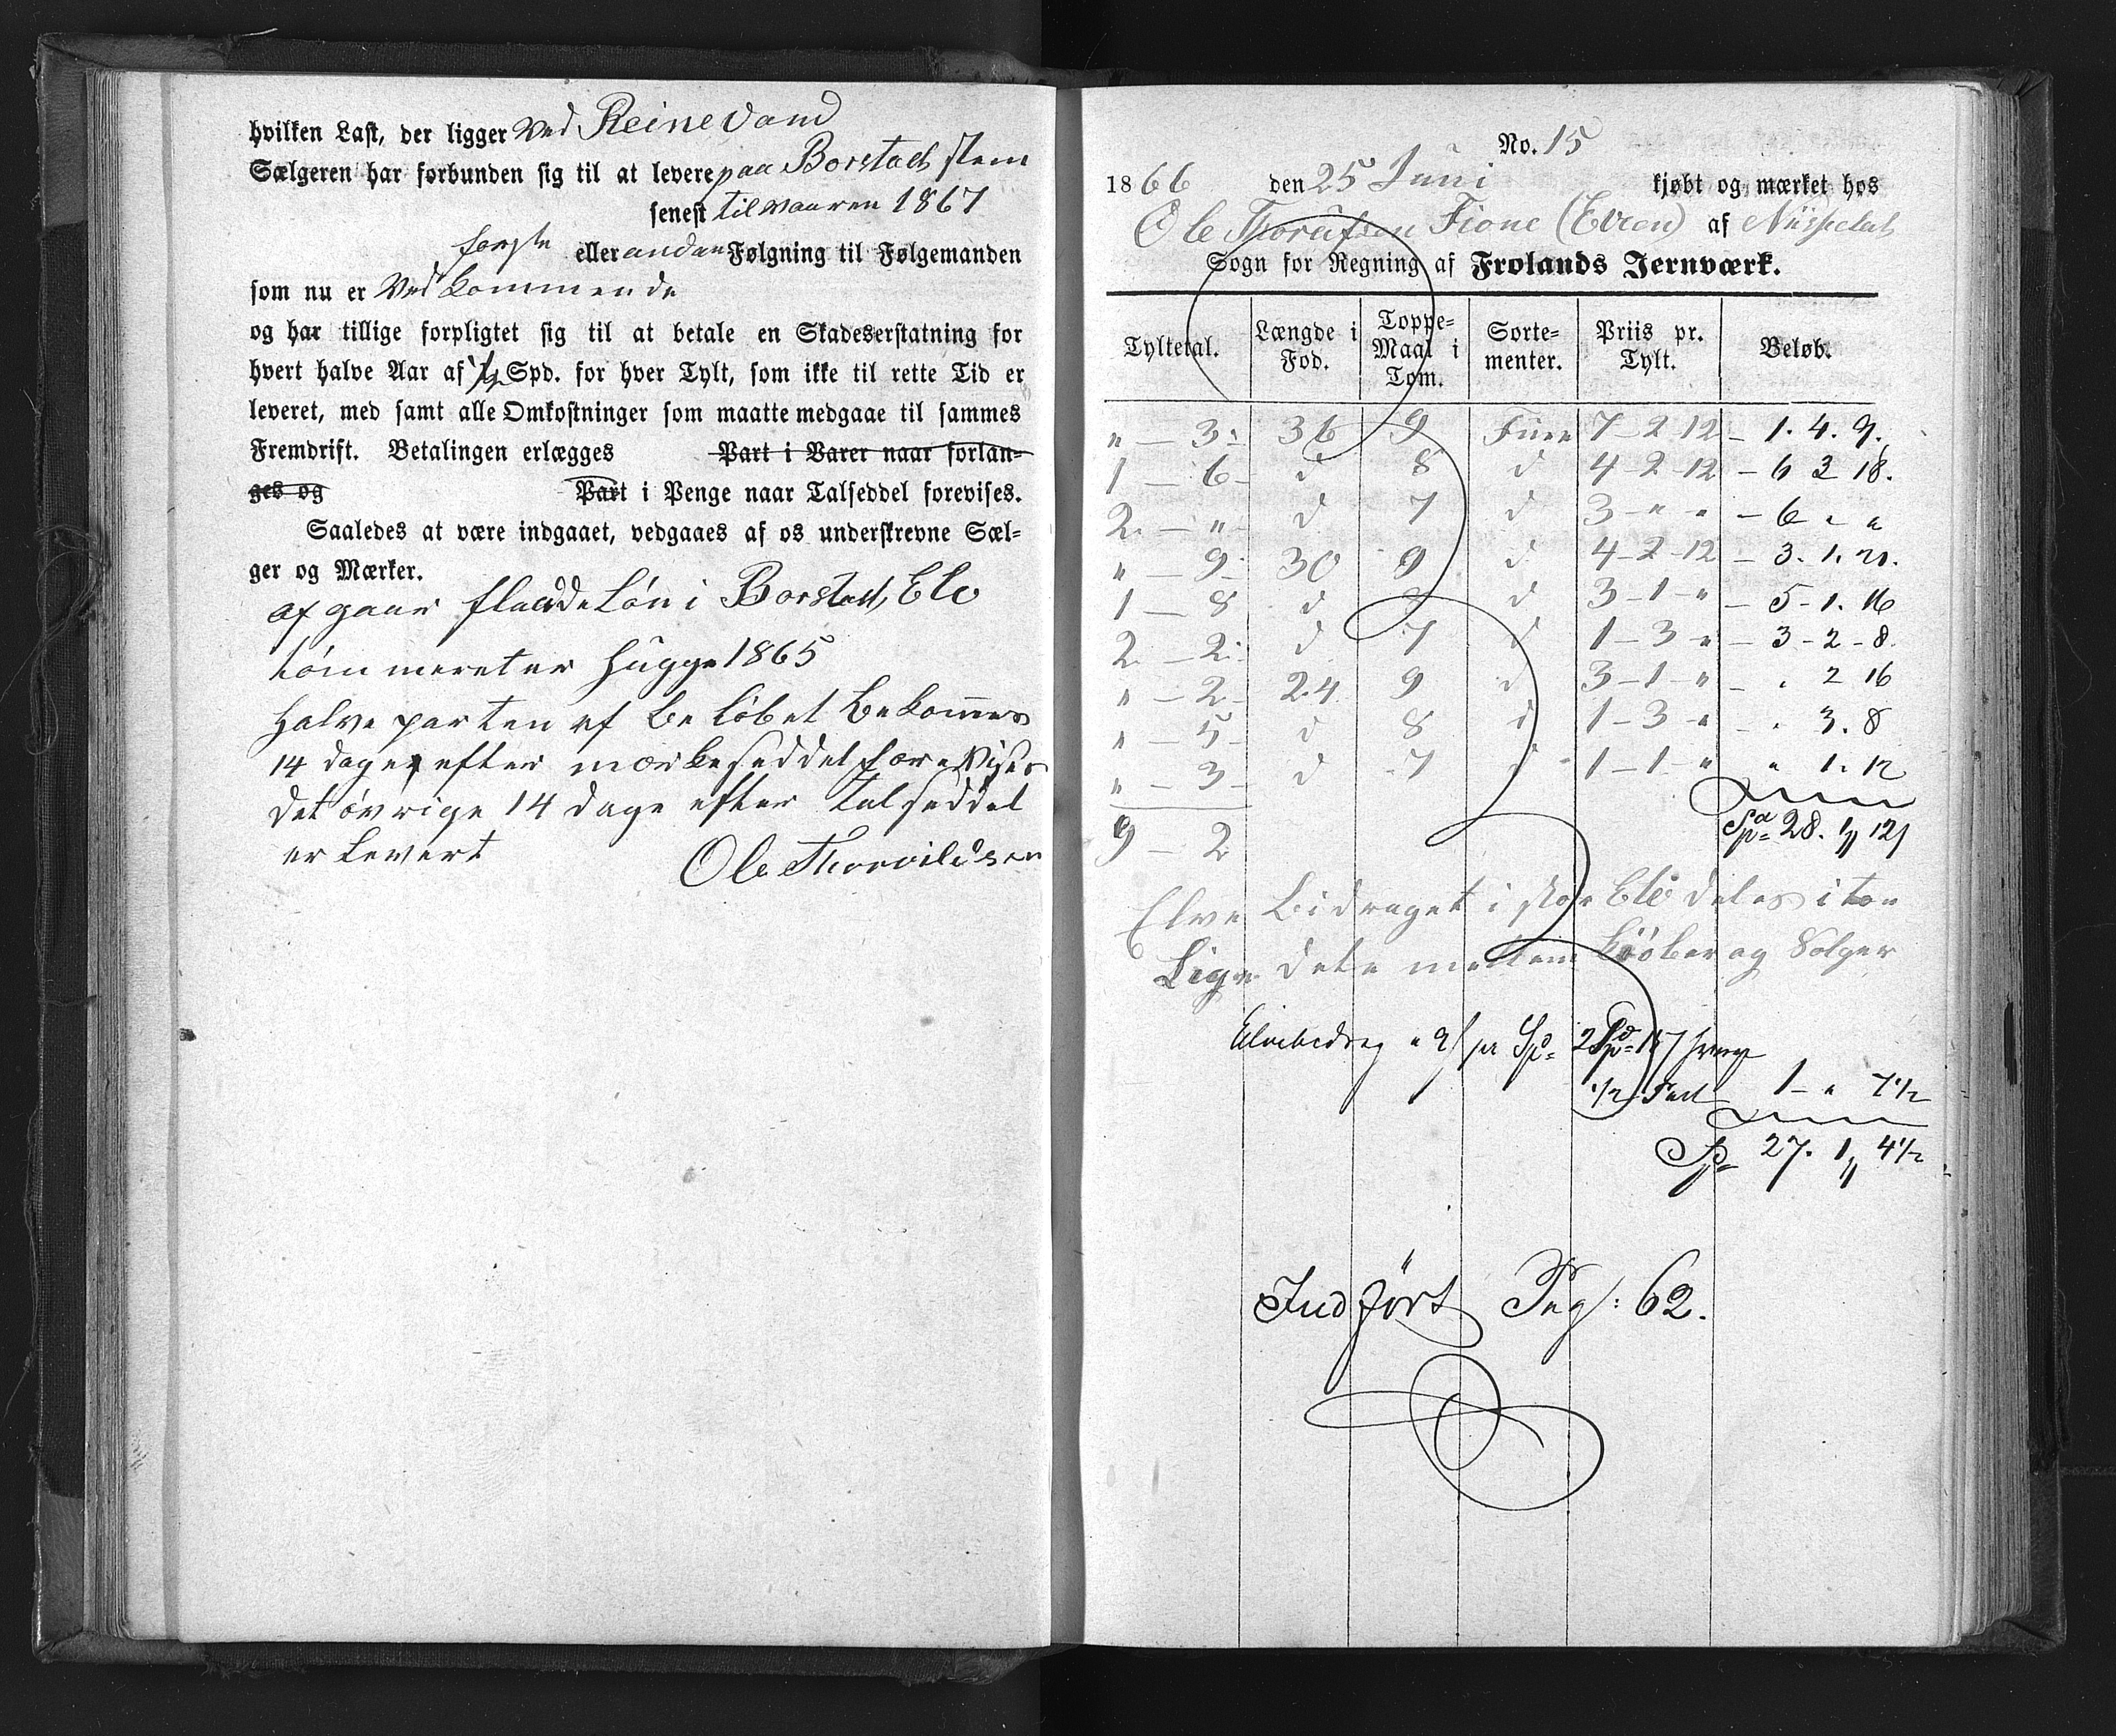 hvilken Last, der ligger ved Reinevand
Sælgeren har forbunden sig til at levere paa Borstads stem
senest til vaaren 1867
første eller anden Følgning til Følgemanden
som nu er Vedkommende
og har tillige forpligtet sig til at betale en Skadeserstatning for
hvert halve Aar af 1/2 Spd. for hver Tylt, som ikke til rette Tid er
leveret, med samt alle Omkostninger som maatte medgaae til sammes
Fremdrift. Betalingen erlægges Part i Varer naar forlan-
ges og Part i Penge naar Talseddel forevises.
Saaledes at være indgaaet, vedgaaes af os underskrevne Sæl-
ger og Mærker.
afgaar flaadeLøn i Borstad Elv
tømmeret er hugge 1865
Halve parten af Beløbet Bekommes
14 dage efter mærkeseddel forevises
det øvrige 14 dage efter Talseddel
er Levert
Ole Thorvildsen
No. 15
1866 den 25 Juni kjøbt og mærket hos
Ole Fione af
Sogn for Regning af Frolands Jernværk.
Tyltetal. Længde i Fod. Toppe-Maal i Tom. Sorte-menter. Priis pr. Tylt. Beløb.
" — 3 36 9 Furu 7-2-12 - 1. 4. 9.
1 — 6 d 8 d 4-2-12 - 6 3 18.
2 — " d 7 d 3-"-" - 6 " "
" — 9 30 9 d 4-2-12 - 3. 1. 21.
1 — 8 d 8 d 3-1-" - 5-1. 16
2 — 2 d 7 d 1-3-" - 3-2-8.
" — 2 24 9 d 3-1-" - " 2 16
" — 5 d 8 d 1-3-" - " 3. 8
" — 3 d 7 d 1-1-" " 1. 12
9 — 2 Spd 28. 1 12
Elve Bidraget i store Elv deles i toe
Lige dele mellem Kjøber og Sølger
Elvebidrag " 9 pr Spd 2 Spd 15
1/2 1 - " 7 1/2
Spd 27. 1 4 1/2
Indført Pag: 62.